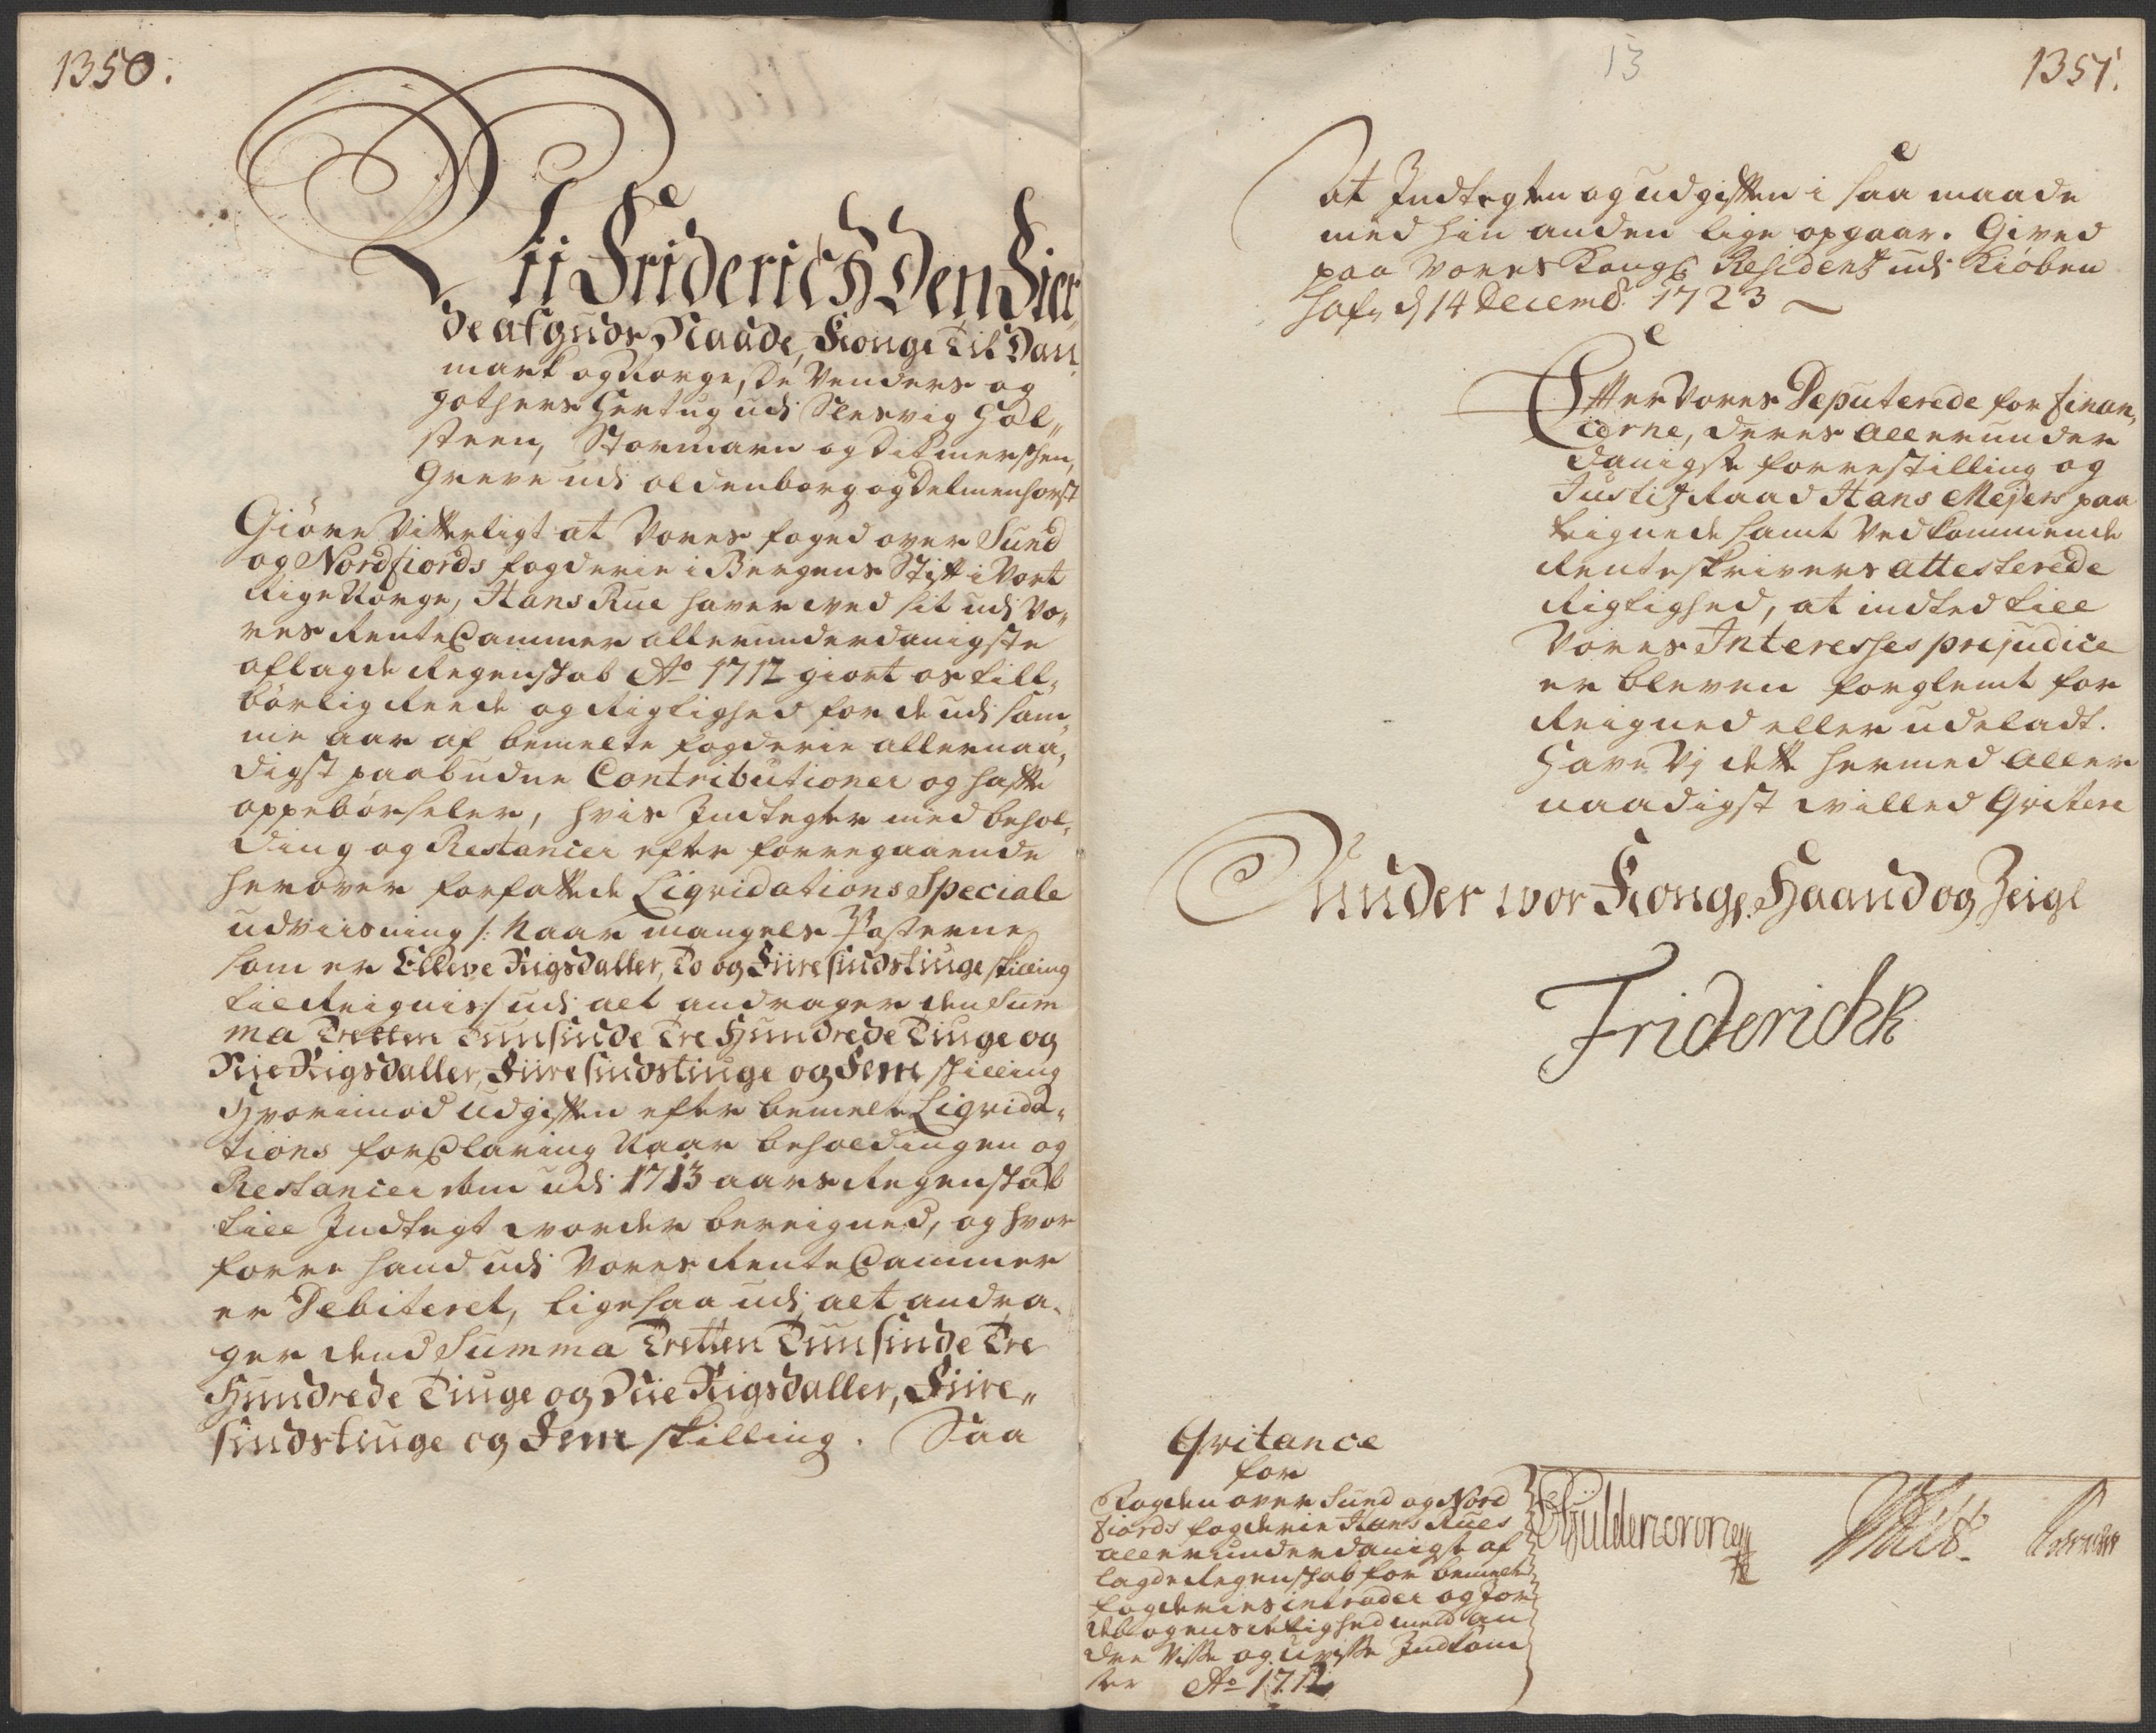 1350.
Vii Friderich Den Fier
de af Guds Naade, Konge Til Dan
mark og Norge, De Venders og
Gothers Hertug udi Slesvig Hol„
steen, Stormarn og Ditmerschen,
Greve udi Oldenborg og Delmenhorst
Giöre Vitterligt at Vores foged over Sund
og Nordfiords fogderie i Bergens Stift i Vort
Rige Norge, Hans Rue haver ved sit udi Vo„
res Rente Cammer allerunderdanigste
aflagde Regenskab Ao 1712 giort os till„
börlig Reede og Rigtighed for de udi sam„
me aar af bemelte fogderie allernaa„
digst paabudne Contributioner og Hafte
oppebörseler, hvis Indtegter med behol„
ding og Restancer efter forregaaende
herover forfattede Liqvidations Speciale
udviisning /: Naar mangels Posterne
som er Elleve Rigsdaller, To og Fiiresindstiuge skilling
til Reignis :/ udi alt andrager den Sum
ma Tretten Tuusinde Tre Hundrede Tiuge og
Nie Rigsdaller, Fiiresindstiuge og Fem skilling
Hvorimod udgiften efter bemelte Liqvida„
tions forClaring Naar beholdingen og
Restancer som udi 1713 aars Regenskab
till Indtegt vorder bereigned, og hvor
forre hand udi Vores Rente Cammer
er Debiteret, ligesaa udi alt andra„
ger dend Summa Tretten Tuusinde Tre
Hundrede Tiuge og Nie Rigsdaller, Fiire„
sindstiuge og Fem skilling. Saa
13
1351.
at Indtegten og udgiften i saa maade
med hin anden lige opgaar. Gived
paa Vores Kongl Residentz udi Kiöben
hafn d 14 Decemb. 1723
Efter Vores Deputerede for finan„
cerne, deres Allerunder
danigste forrestilling og
Justitz Raad Hans Mejers paa
teignede samt Vedkommende
Renteskrivers attesterede
Rigtighed, at indted till
Vores Interesses prejudice
er bleven forglemt for
Reigned eller udeladt.
Have Vj dette hermed Aller
naadigst villed Qvitere
Under vor Kongl. Haand og Zeigl
Friderich R
Qvitance
for
Fogden over Sund og Nord
fiords fogderie Hans Rues
allerunderdanigst af
lagde Regenskab for bemelte
fogderies intrader og Jor
debogens rettighed med an
dre Visse og Uvisse Indkom
ster Ao 1712
Güldencrone